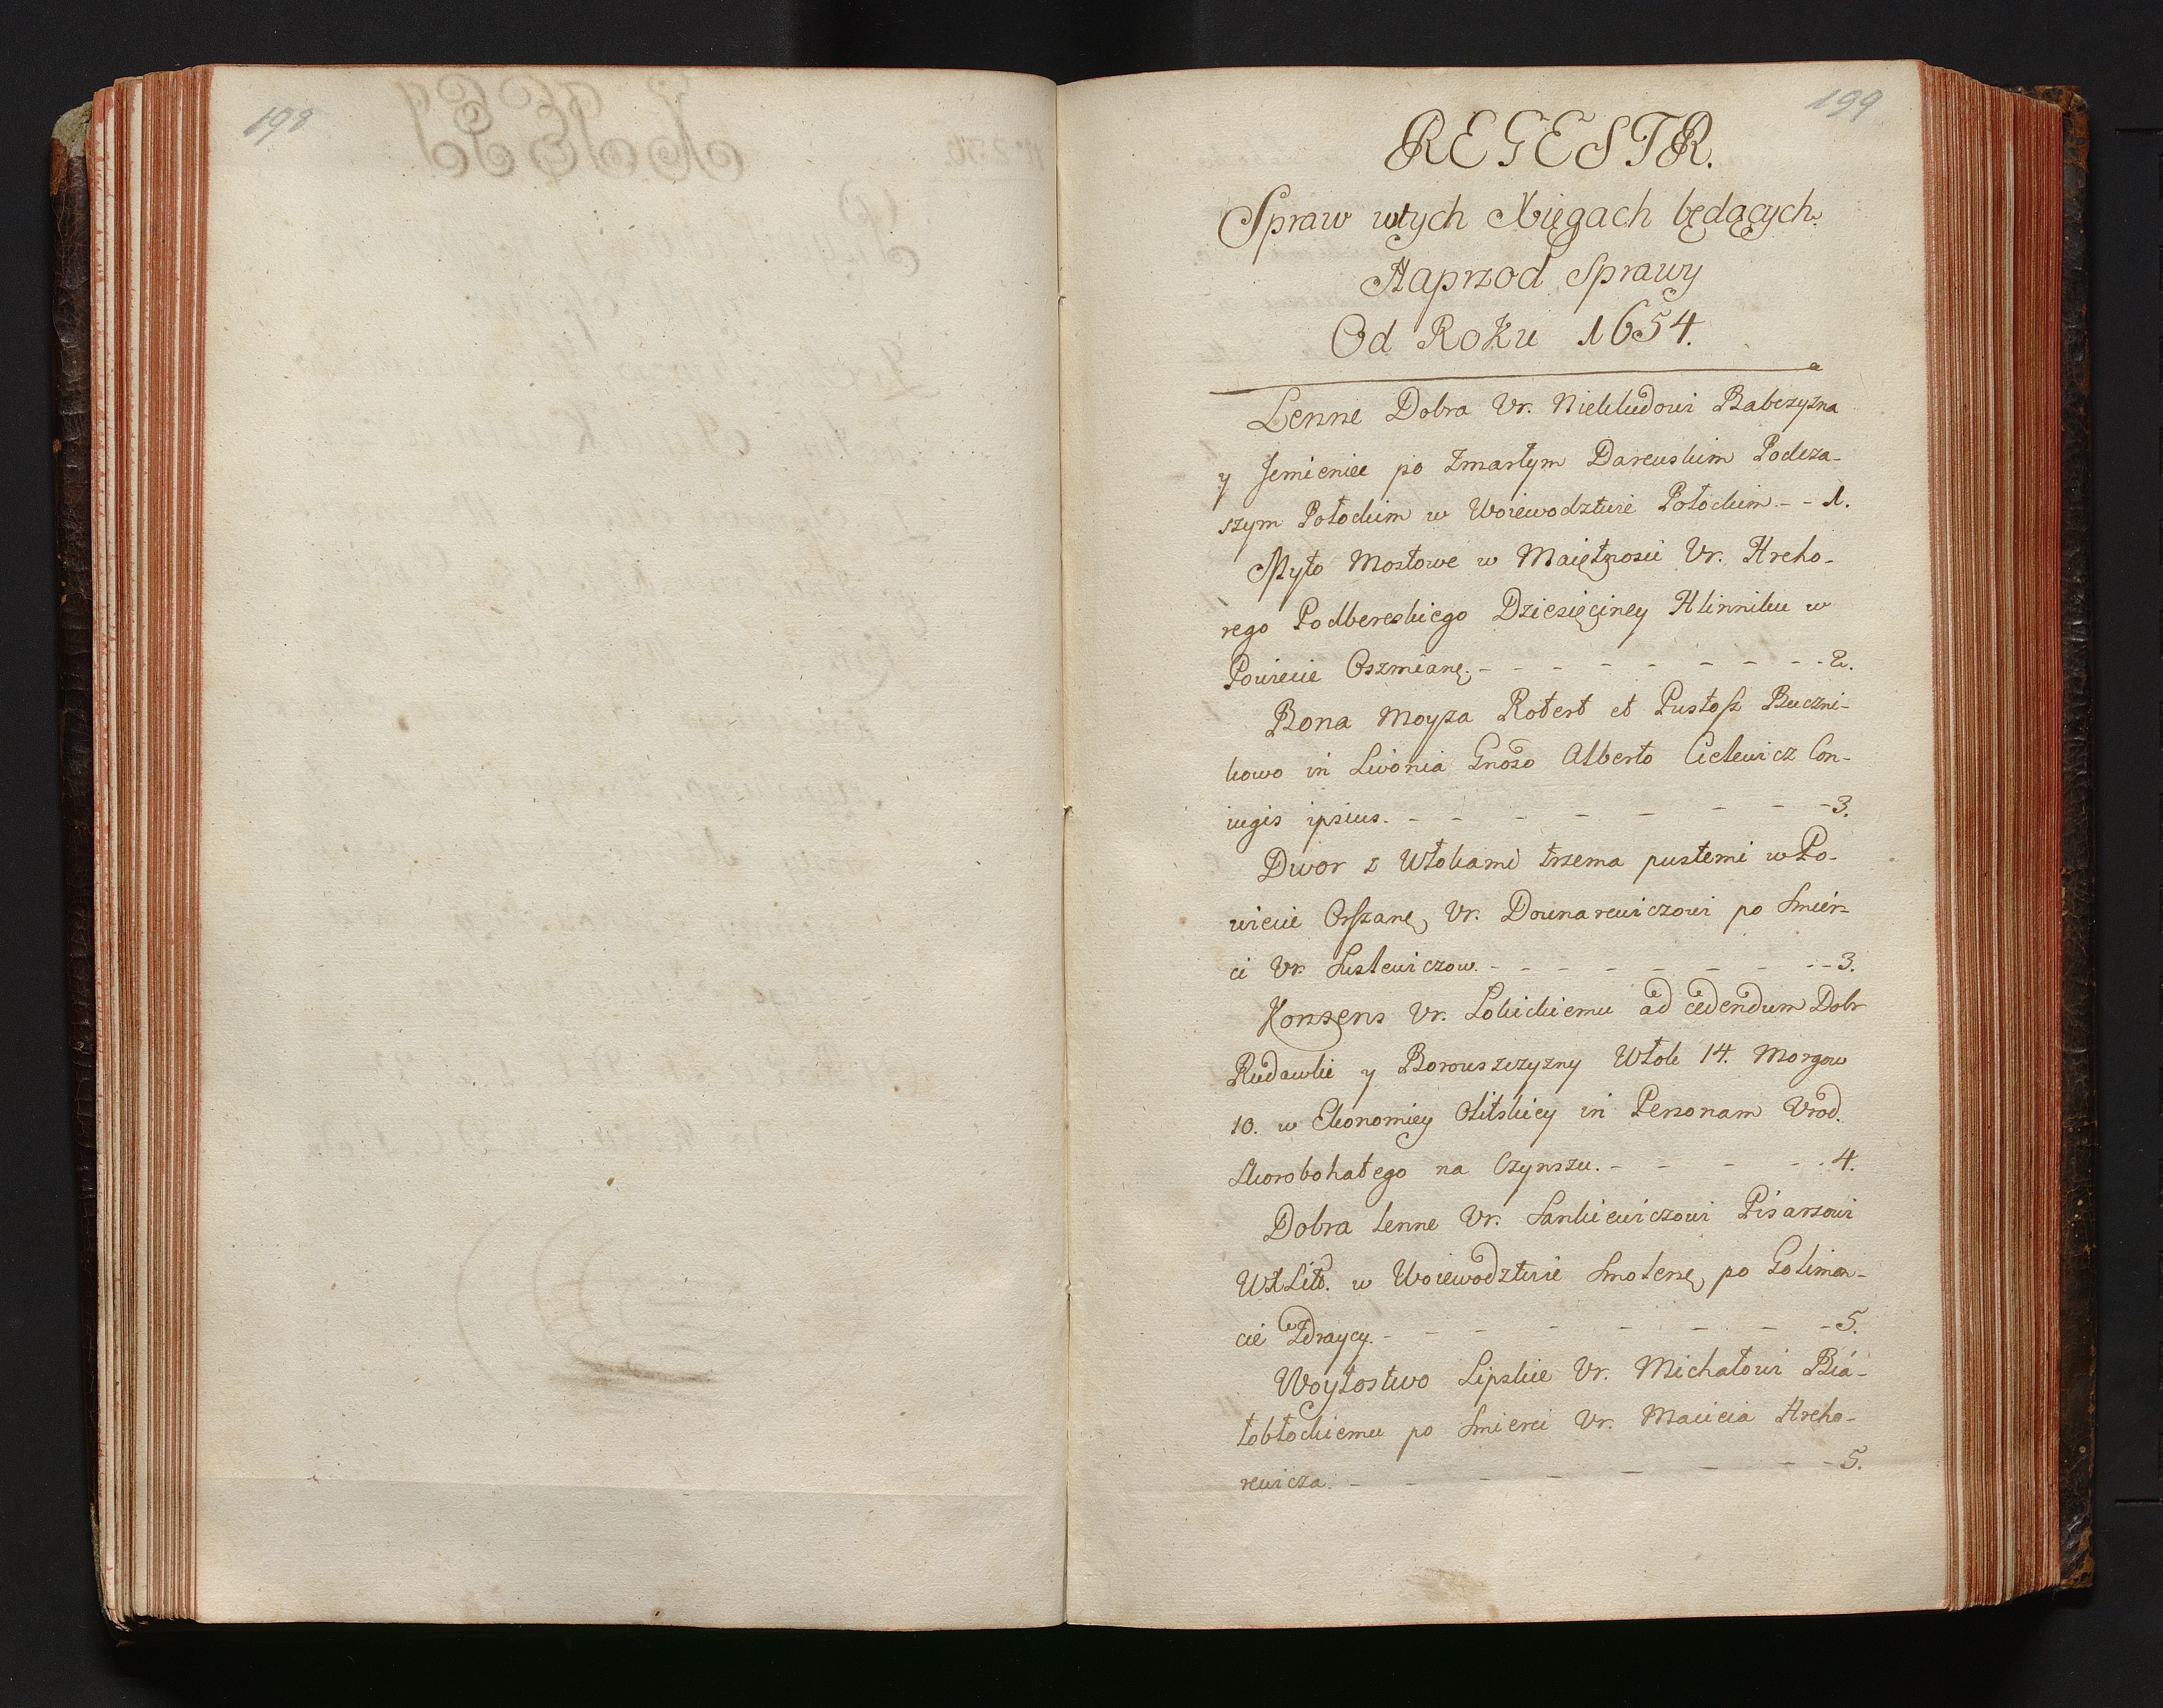 198
199
REGESTR.
Spraw wtych Xięgach będących.
Naprzod Sprawy
Od Roku 1654.
Lenne Dobra Ur. Niekludowi Babczyzna
y Jemieniec po Zmarłym Darewskim Podcza-
szym Połockim w Woiewodztwie Połockim - - 1.
Myto Mostowe w Maiętnosci Ur. Hreho-
rego Podbereskiego Dziesięciney Hlinniku w
Powiecie Oszmianę. - - - - - - - - - 2.
Bona Moyza Rotert et Pustosz Buczni-
kowo in Livonia Gnoso Alberto Cielewicz Con-
iugis ipsius. - - - - - - - - 3.
Dwor z Włokami trzema pustemi w Po-
wiecie Orszanę, Ur. Downarewiczowi po Smier-
ci Ur. Suslewiczow. - - - - - - - - 3.
Konsens Ur. Lokickiemu ad cedendum Dobr
Rudawki y Borouszczyzny Włok 14. Morgow
10. w Ekonomiey Olitskiey in Personam Urod.
Skorobohatego na Czynszu. - - - - - 4.
Dobra lenne Ur. Sankiewiczowi Pisarzowi
WXLitt. w Woiewodztwie Smolenę, po Golimon-
cie Zdraycy. - - - - - - - - 5.
Woytostwo Lipskie Ur. Michałowi Biá-
łobłockiemu po Smierci Ur. Macieia Hreho-
rewicza. - - - - - - - - 5.